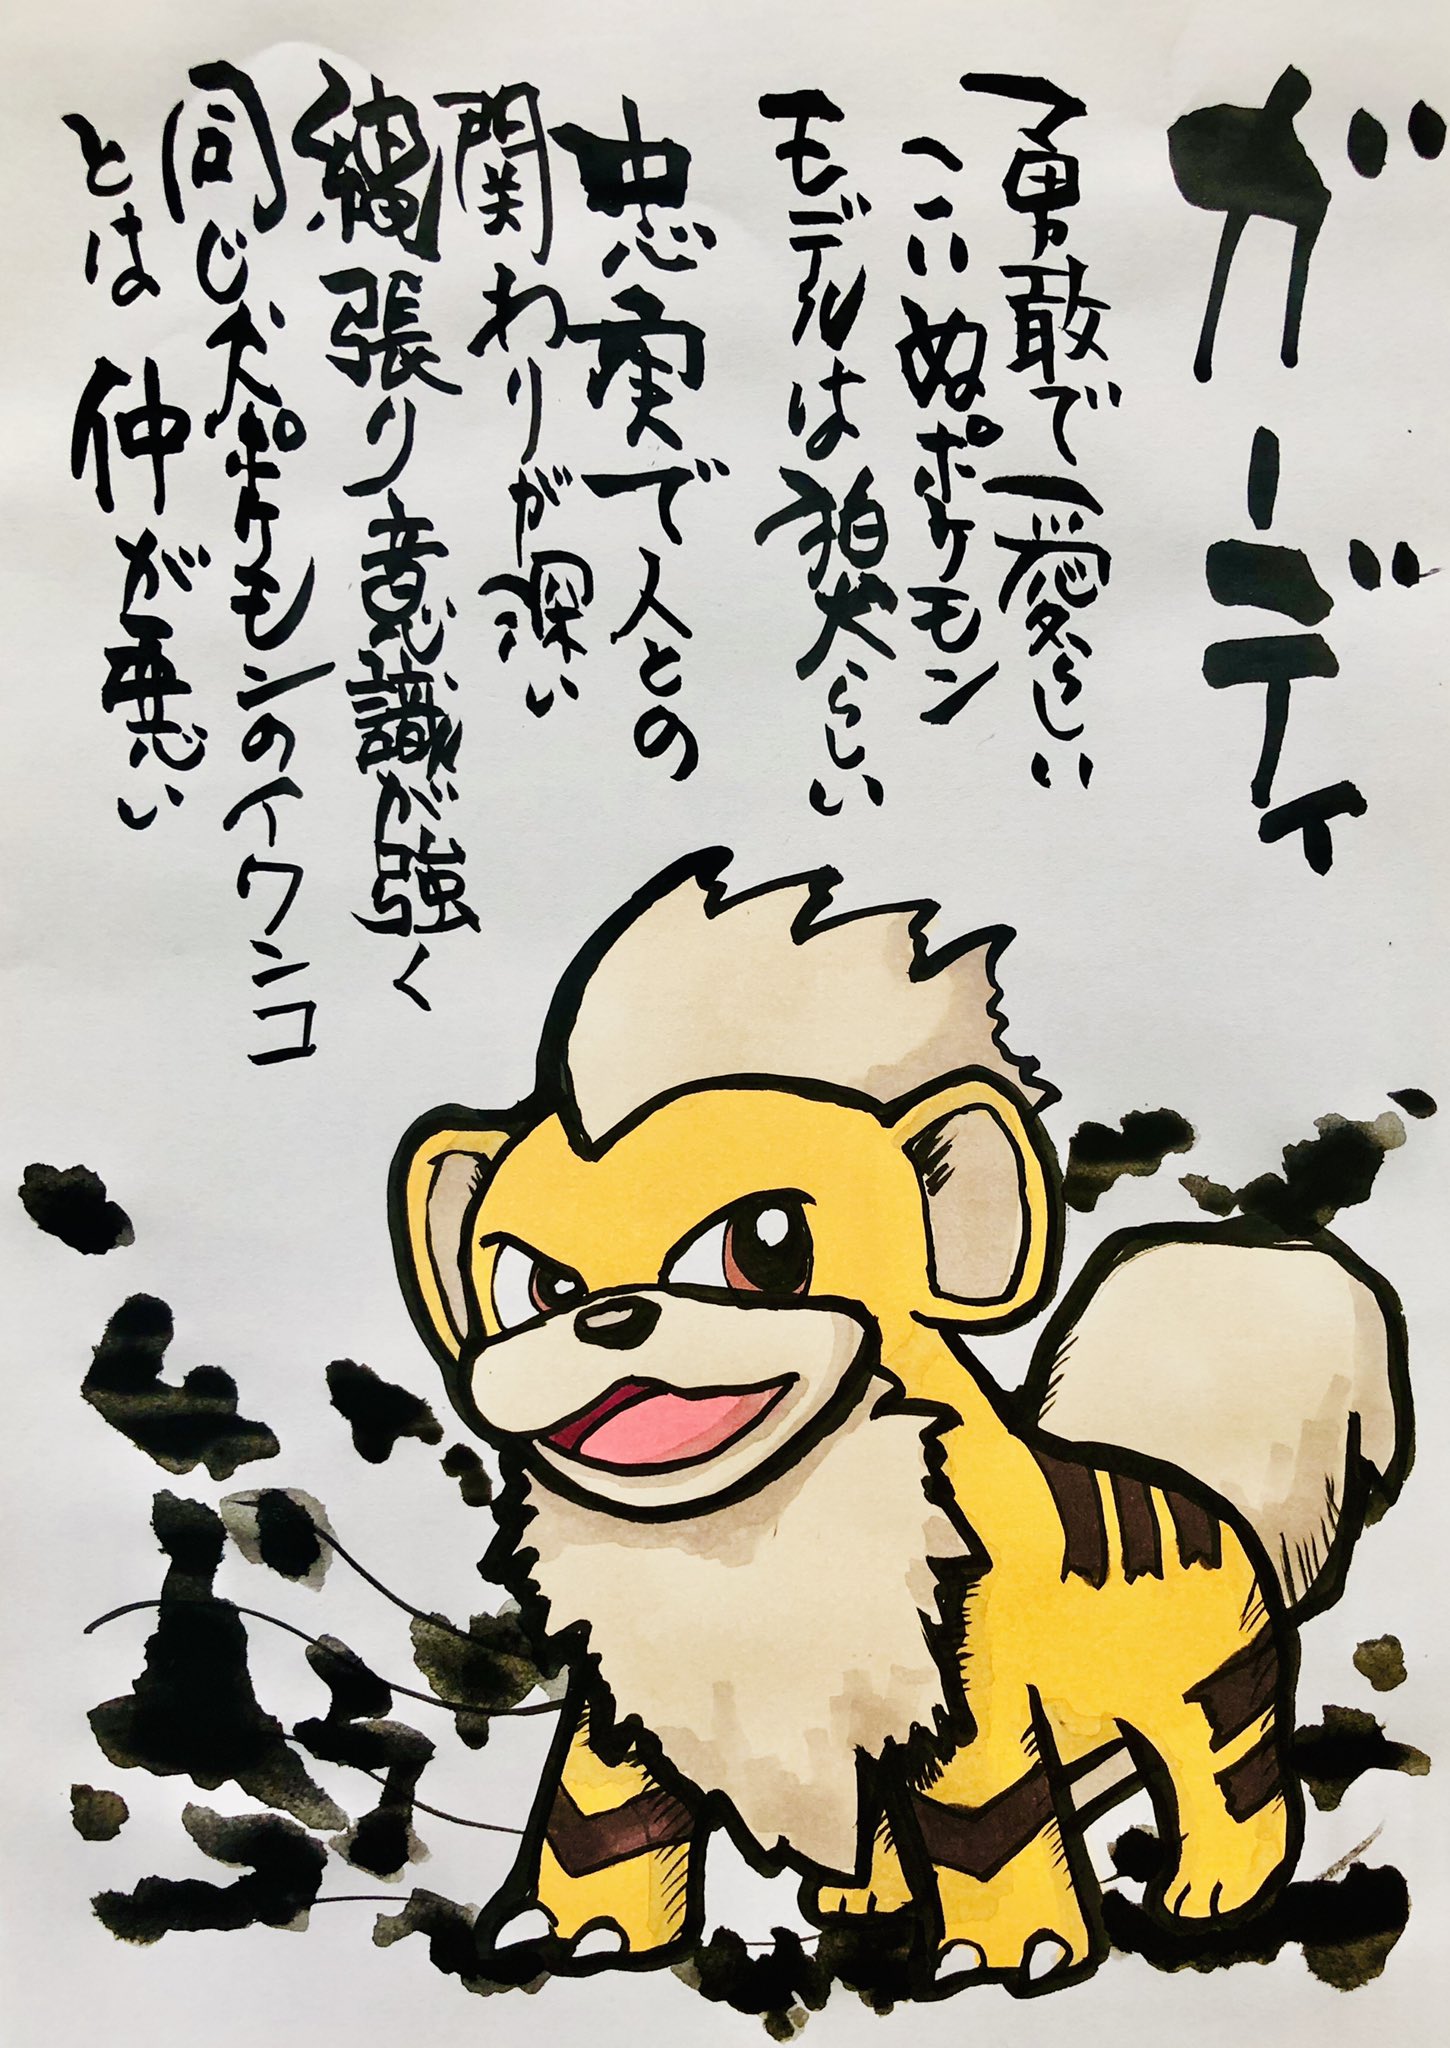 ガーディ
勇敢で愛らしい
こいぬポケモン
モデルは狛犬らしい
忠実で人との
関わりが深い
縄張り意識が強く
同じ犬ポケモンのイワンコ
とは仲が悪い